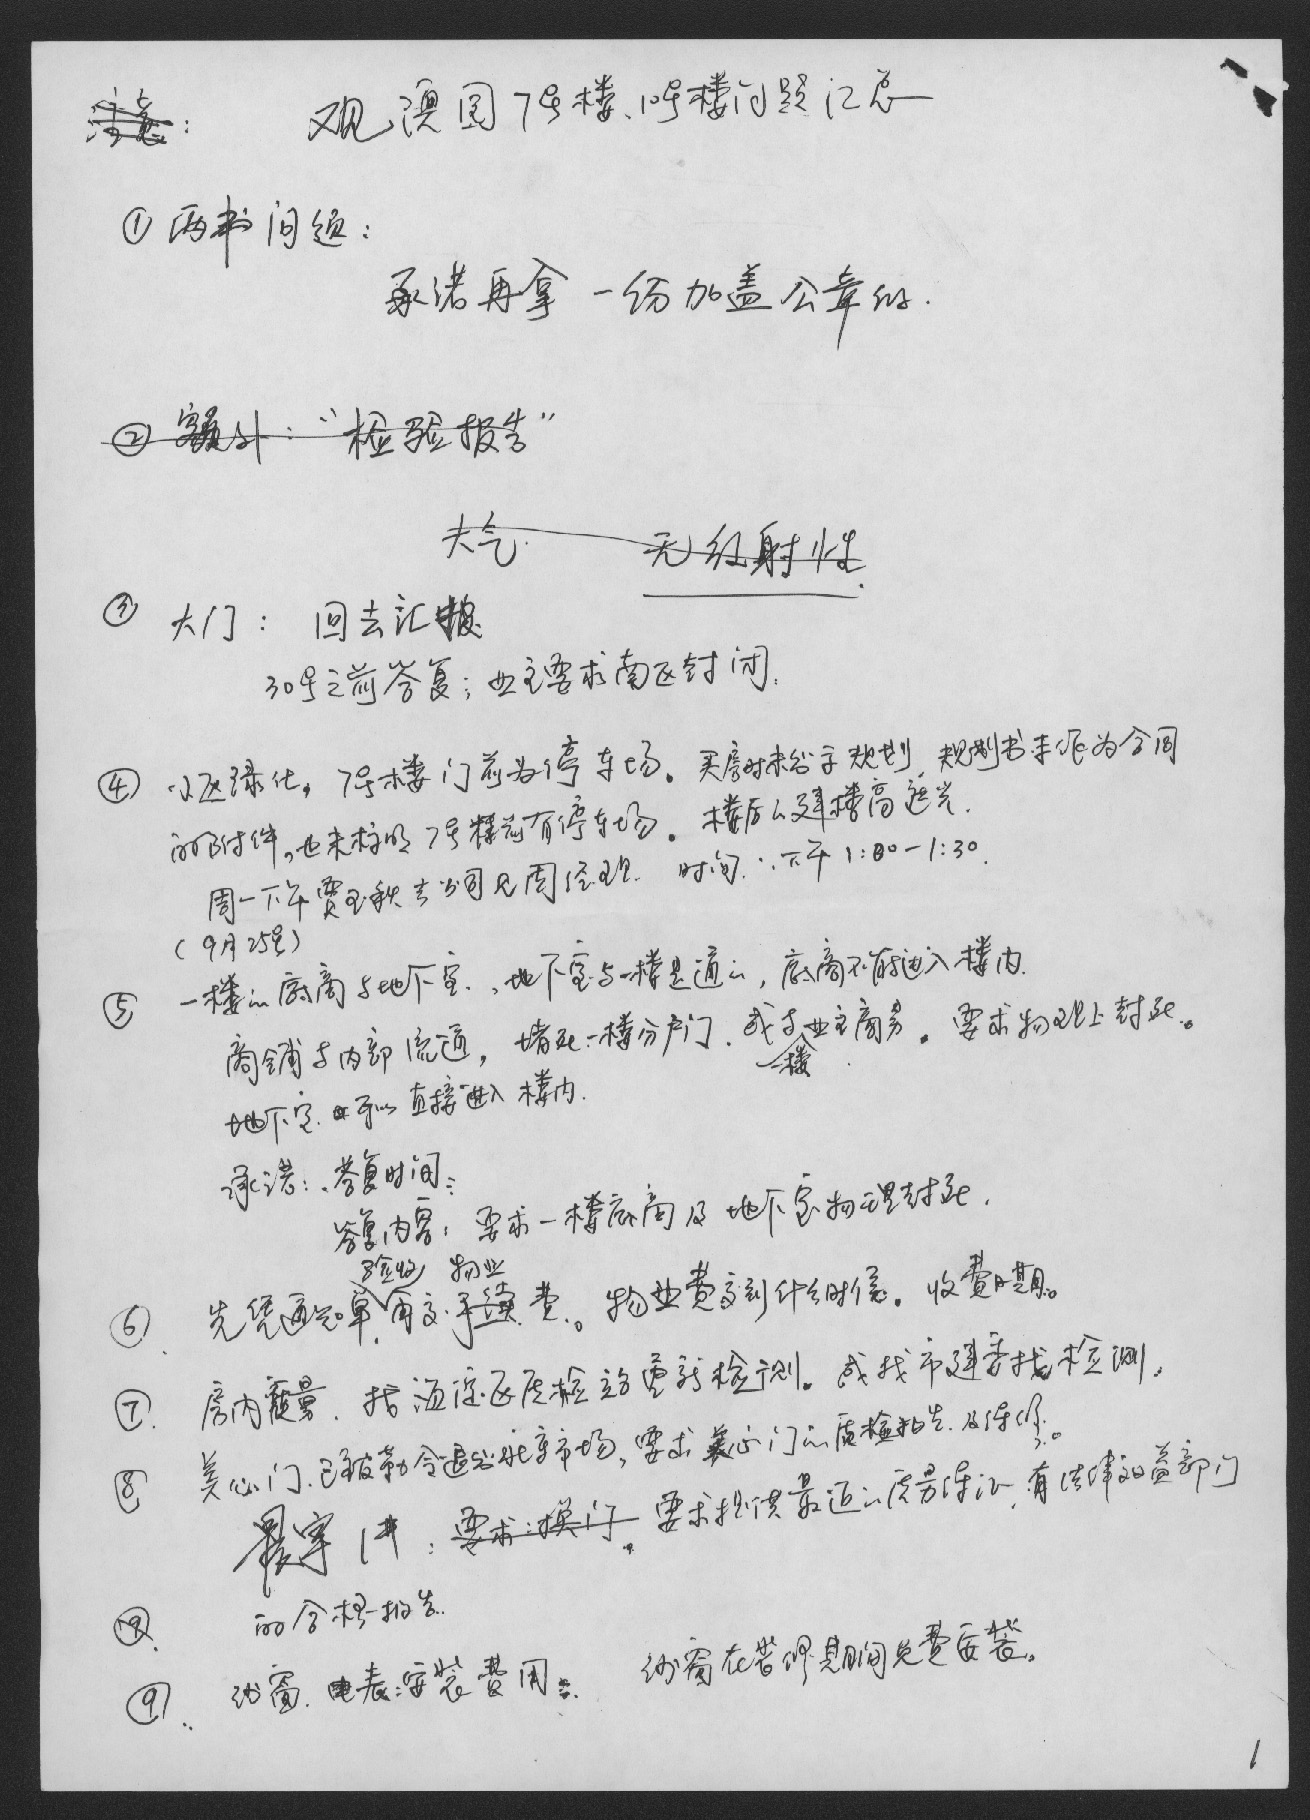 注意: 观澳园7号楼、10号楼问题汇总
① 两书问题:
承诺再拿一份加盖公章的.
② 额外:“检验报告”
大气. 无红射性.
③ 大门: 回去汇报
30号之前答复; 业主要求南区封闭.
④ 小区绿化。7号楼门前为停车场。买房时未公示规划, 规划书未作为合同
的附件。也未标明7号楼前有停车场。楼后公建楼高遮光.
周一下午贾玉秋去公司见周经理. 时间:下午1:00-1:30.
(9月25号)
⑤ 一楼的底商与地下室., 地下室与一楼是通的, 底商不能进入楼内.
商铺与内部流通, 堵死一楼分户门. 或与业主商务。要求物理上封死。
一楼
地下室 可以直接进入楼内.
承诺:. 答复时间:
答复内容: 要求一楼底商及地下室物理封死.
验收 物业
⑥ 先凭通知单, 再交手续费。物业费交到什么时候。收费日期。
⑦. 房内质量. 找海淀区质检站重新检测。或找市建委找检测.
⑧ 美心门.已被勒令退出北京市场, 要求美心门的质检报告及保修。
晨宇 1#: 要求:换门. 要求提供最近的质量保证, 有法律效益部门
⑨. 的合格报告.
⑨.. 纱窗. 电表:安装费用:. 纱窗在装修期间免费安装。
1